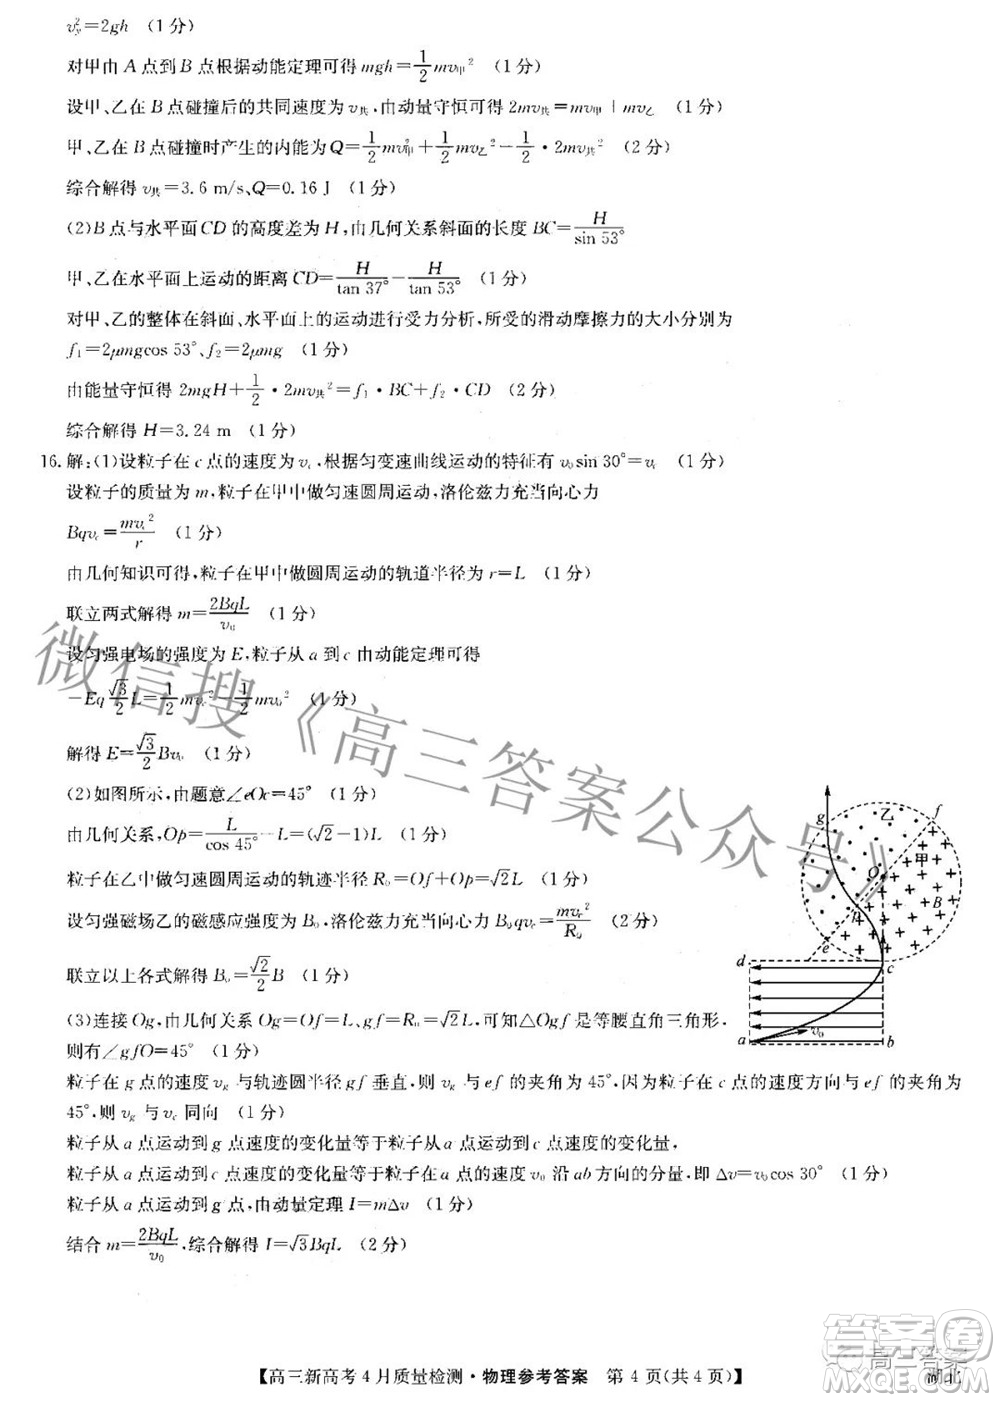 v_y²=2gh (1分)
对甲由A点到B点根据动能定理可得 mgh=1/2 mv甲² (1分)
设甲、乙在B点碰撞后的共同速度为v共,由动量守恒可得 2mv共=mv甲+mv乙 (1分)
甲、乙在B点碰撞时产生的内能为Q=1/2 mv甲²+1/2 mv乙²-1/2·2mv共² (2分)
综合解得 v共=3.6 m/s、Q=0.16 J (1分)
(2)B点与水平面CD的高度差为H,由几何关系斜面的长度 BC=H/sin 53°
甲、乙在水平面上运动的距离 CD=H/tan 37°-H/tan 53°
对甲、乙的整体在斜面、水平面上的运动进行受力分析,所受的滑动摩擦力的大小分别为
f₁=2μmgcos 53°、f₂=2μmg (1分)
由能量守恒得 2mgH+1/2·2mv共²=f₁·BC+f₂·CD (2分)
综合解得 H=3.24 m (1分)
16.解:(1)设粒子在c点的速度为v_c,根据匀变速曲线运动的特征有 v₀sin 30°=v_c (1分)
设粒子的质量为m,粒子在甲中做匀速圆周运动,洛伦兹力充当向心力
Bqv_c=mv_c²/r (1分)
由几何知识可得,粒子在甲中做圆周运动的轨道半径为 r=L (1分)
联立两式解得 m=2BqL/v₀ (1分)
设匀强电场的强度为E,粒子从a到c由动能定理可得
-Eq √3/2 L=1/2 mv_c²-1/2 mv₀² (1分)
解得 E=√3/2 Bv₀ (1分)
(2)如图所示,由题意∠eOc=45° (1分)
由几何关系,Op=L/cos 45°-L=(√2-1)L (1分)
粒子在乙中做匀速圆周运动的轨迹半径 R₀=Of+Op=√2L (1分)
设匀强磁场乙的磁感应强度为B₀,洛伦兹力充当向心力 B₀qv_c=mv_c²/R₀ (2分)
联立以上各式解得 B₀=√2/2 B (1分)
(3)连接Og,由几何关系 Og=Of=L、gf=R₀=√2L,可知△Ogf是等腰直角三角形,
则有∠gfO=45° (1分)
粒子在g点的速度v_g与轨迹圆半径gf垂直,则v_g与ef的夹角为45°,因为粒子在c点的速度方向与ef的夹角为
45°,则v_g与v_c同向 (1分)
粒子从a点运动到g点速度的变化量等于粒子从a点运动到c点速度的变化量,
粒子从a点运动到c点速度的变化量等于粒子在a点的速度v₀沿ab方向的分量,即 Δv=v₀cos 30° (1分)
粒子从a点运动到g点,由动量定理 I=mΔv (1分)
结合 m=2BqL/v₀,综合解得 I=√3BqL (2分)
g 乙 f
甲
O
p B
e
d c
v₀
a b
微信搜《高三答案公众号》
【高三新高考4月质量检测·物理参考答案 第4页(共4页)】
湖北
高三答案
答案圈
MXQE.COM